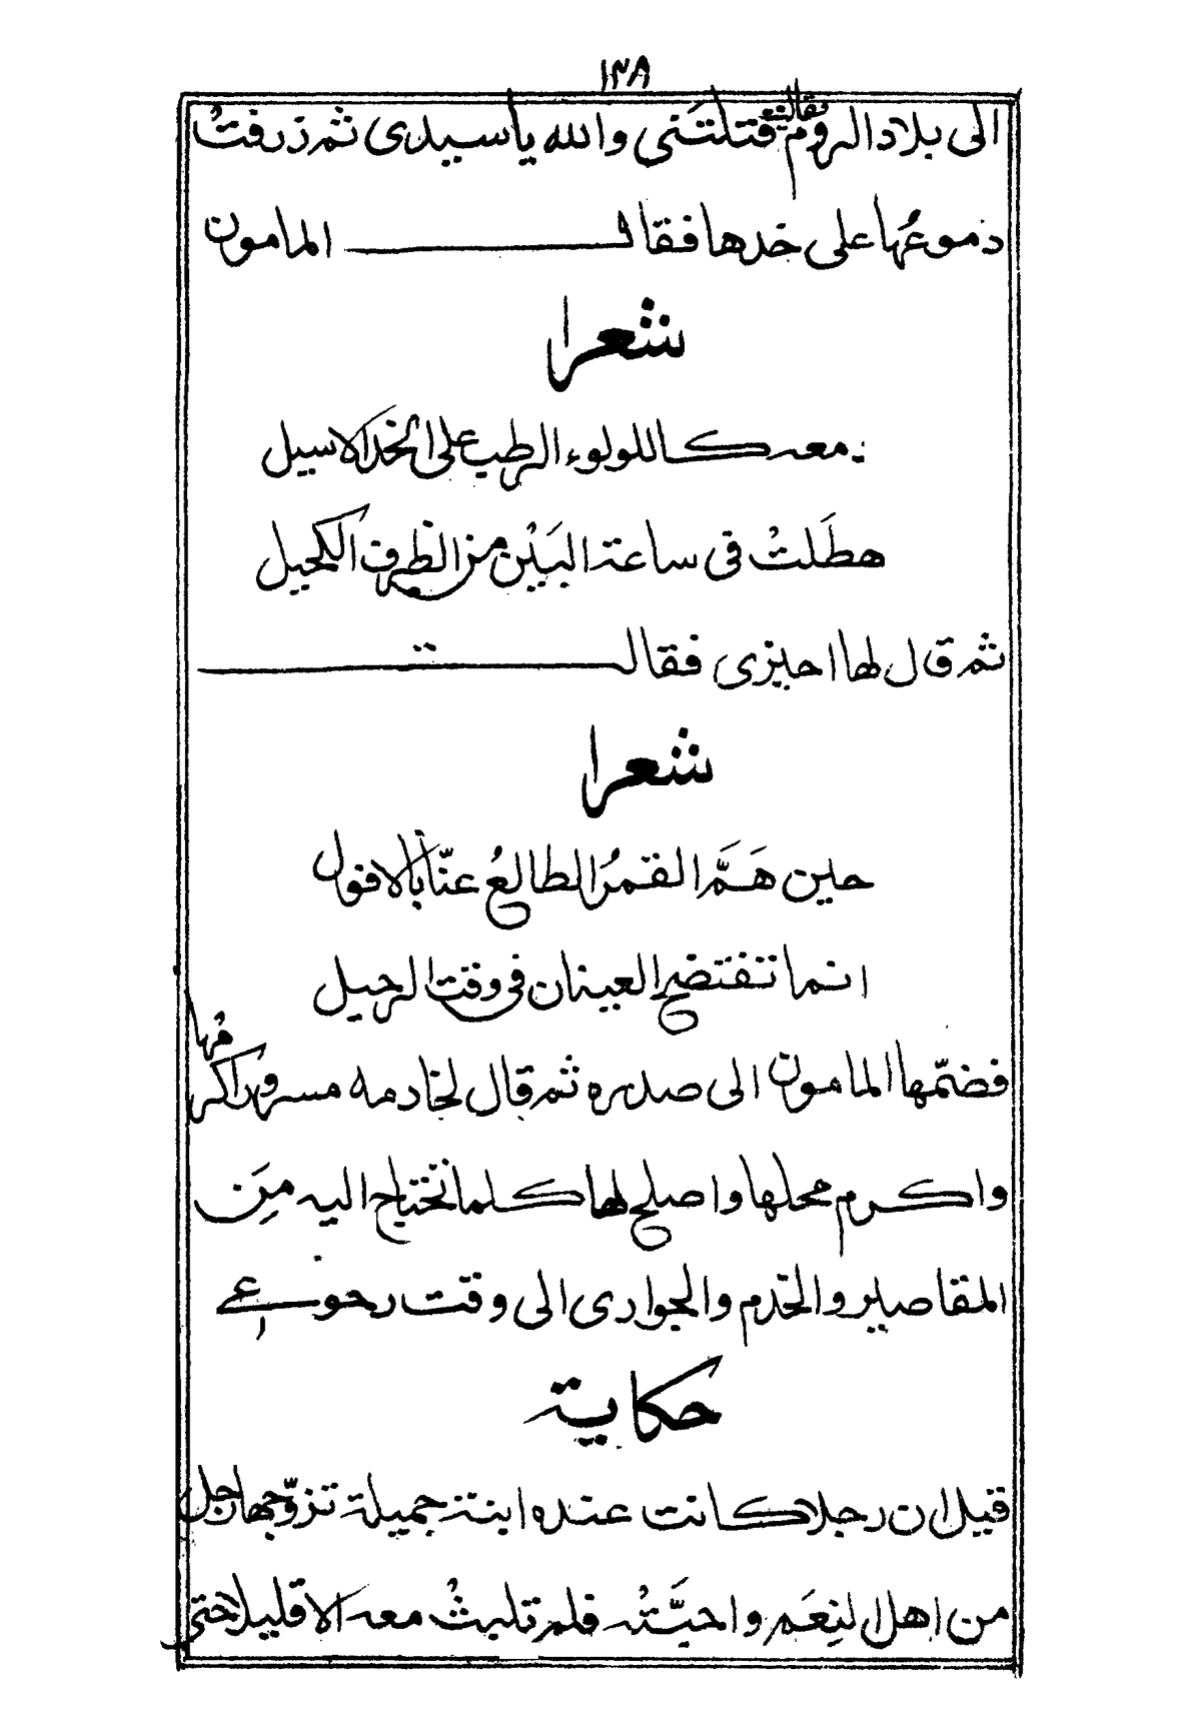 ١٣٨
الى بلاد الروم فقالت قتلتنى والله يا سيدى ثم ذرفتْ
دموعُها على خدها فقال المامون
شعرا
دمعه كاللولوء الرطب على الخد الاسيل
هطَلتْ فى ساعة البَيْن من الطرف الكحيل
ثم قال لها اجيزى فقالت
شعرا
حين هَمَّ القمرُ الطالعُ عنّا بالافول
انما تفتضح العينان فى وقت الرحيل
فضمّها المامون الى صدره ثم قال لخادمه مسرور اكرمُها
واكرم محلها واصلح لها كلما تحتاج اليه مِن
المقاصير والخدم والجوارى الى وقت رجوعى
حكاية
قيل ان رجلا كانت عنده ابنة جميلة تزوّجها رجل
من اهل النِعَم واحبَّتْه فلم تلبثْ معه الا قليلا حتى